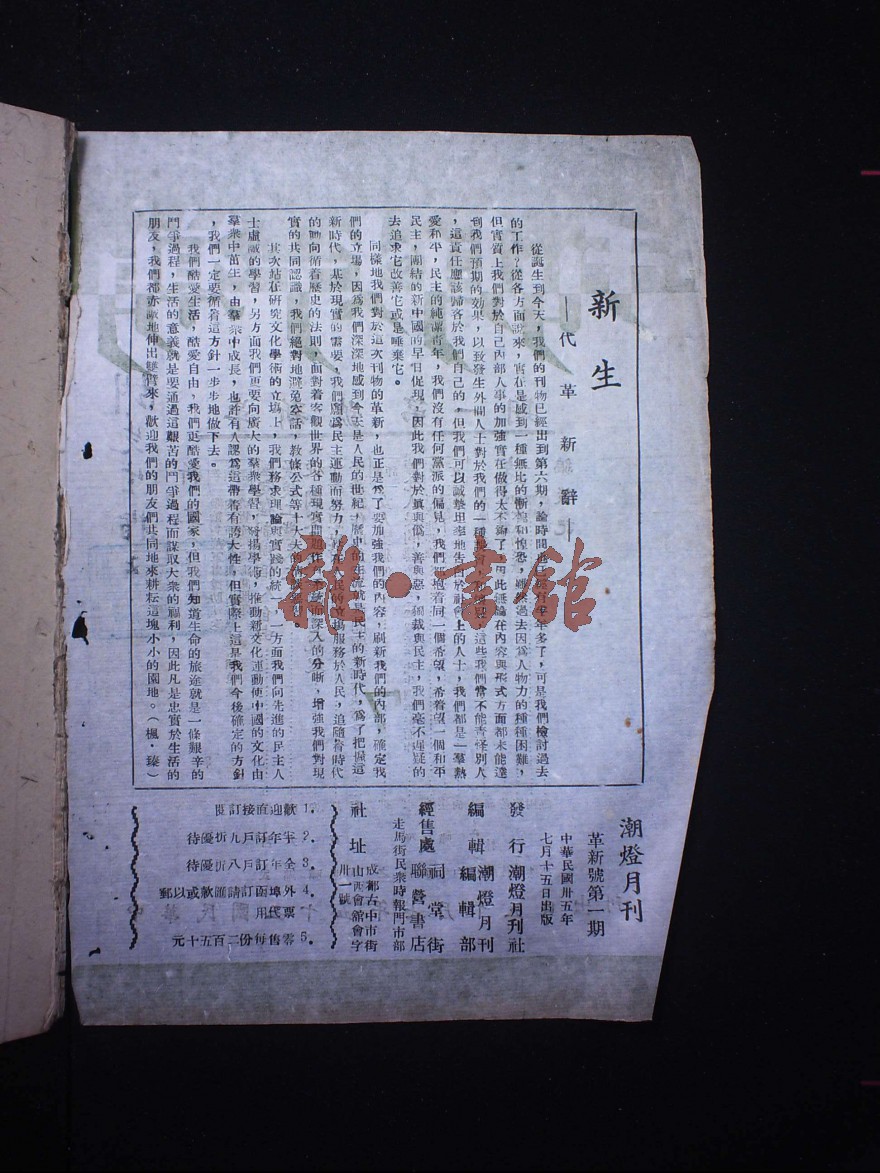 新生
—代革新辭—
從誕生到今天，我們的刊物已經出到第六期，論時間也已經有半年多了，可是我們檢討過去
的工作，從各方面說來，實在是感到一種無比的慚愧和惶恐，雖然過去因為人物力的種種困難，
但實質上我們對於自己內部人事的加強實在做得太不夠了，因此無論在內容與形式方面都未能達
到我們預期的效果，以致發生外間人士對於我們的一種，這些我們當不能責怪別人
，這責任應該歸咎於我們自己的，但我們可以誠摯坦率地告白於社會上的人士，我們都是一羣熱
愛和平，民主的純潔青年，我們沒有任何黨派的偏見，我們只抱着同一個希望，希着望一個和平
民主，團結的新中國的早日促現，因此我們對於真與偽，善與惡，獨裁與民主，我們毫不遲疑的
去追求它改善它或是唾棄它。
同樣地我們對於這次刊物的革新，也正是為了要加強我們的內容，刷新我們的內部，確定我
們的立場，因為我們深深地感到今天是人民的世紀，歷史的主流就是民主的新時代，為了把握這
新時代，基於現實的需要，我們願為民主運動而努力，站在人民的立場服務於人民，追隨着時代
的動向循着歷史的法則，面對着客觀世界的各種現實問題作有系統而深入的分晰，增強我們對現
實的共同認識，我們絕對地避免空話，教條公式等十大夫的
其次站在研究文化學術的立場上，我們務求理論與實踐的統一，一方面我們向先進的民主人
士虛誠的學習，另方面我們更要向廣大的羣衆學習，發揚學術，推動新文化運動使中國的文化由
羣衆中萌生，由羣衆中成長，也許有人認為這帶着有誇大性，但實際上這是我們今後確定的方針
，我們一定要循着這方針一步步地做下去。
我們酷愛生活，酷愛自由，我們更酷愛我們的國家，但我們知道生命的旅途就是一條艱辛的
鬥爭過程，生活的意義就是要通過這艱苦的鬥爭過程而謀取大衆的福利，因此凡是忠實於生活的
朋友，我們都赤誠地伸出雙臂來，歡迎我們的朋友們共同地來耕耘這塊小小的園地。（楓·臻）
潮燈月刊
革新號第一期
中華民國卅五年
七月十五日出版
發行 潮燈月刊社
編輯 潮燈月刊
編輯部
經售處 祠堂街
聯營書店
走馬街民衆時報門市部
社址 成都古中市街
山西會館會字
卅一號
1.歡迎直接訂閱
2.半年訂戶九折優待
3.全年訂戶八折優待
4.外埠函訂請匯款或以郵
票代用
5.零售每份二百五十元
雜·書館